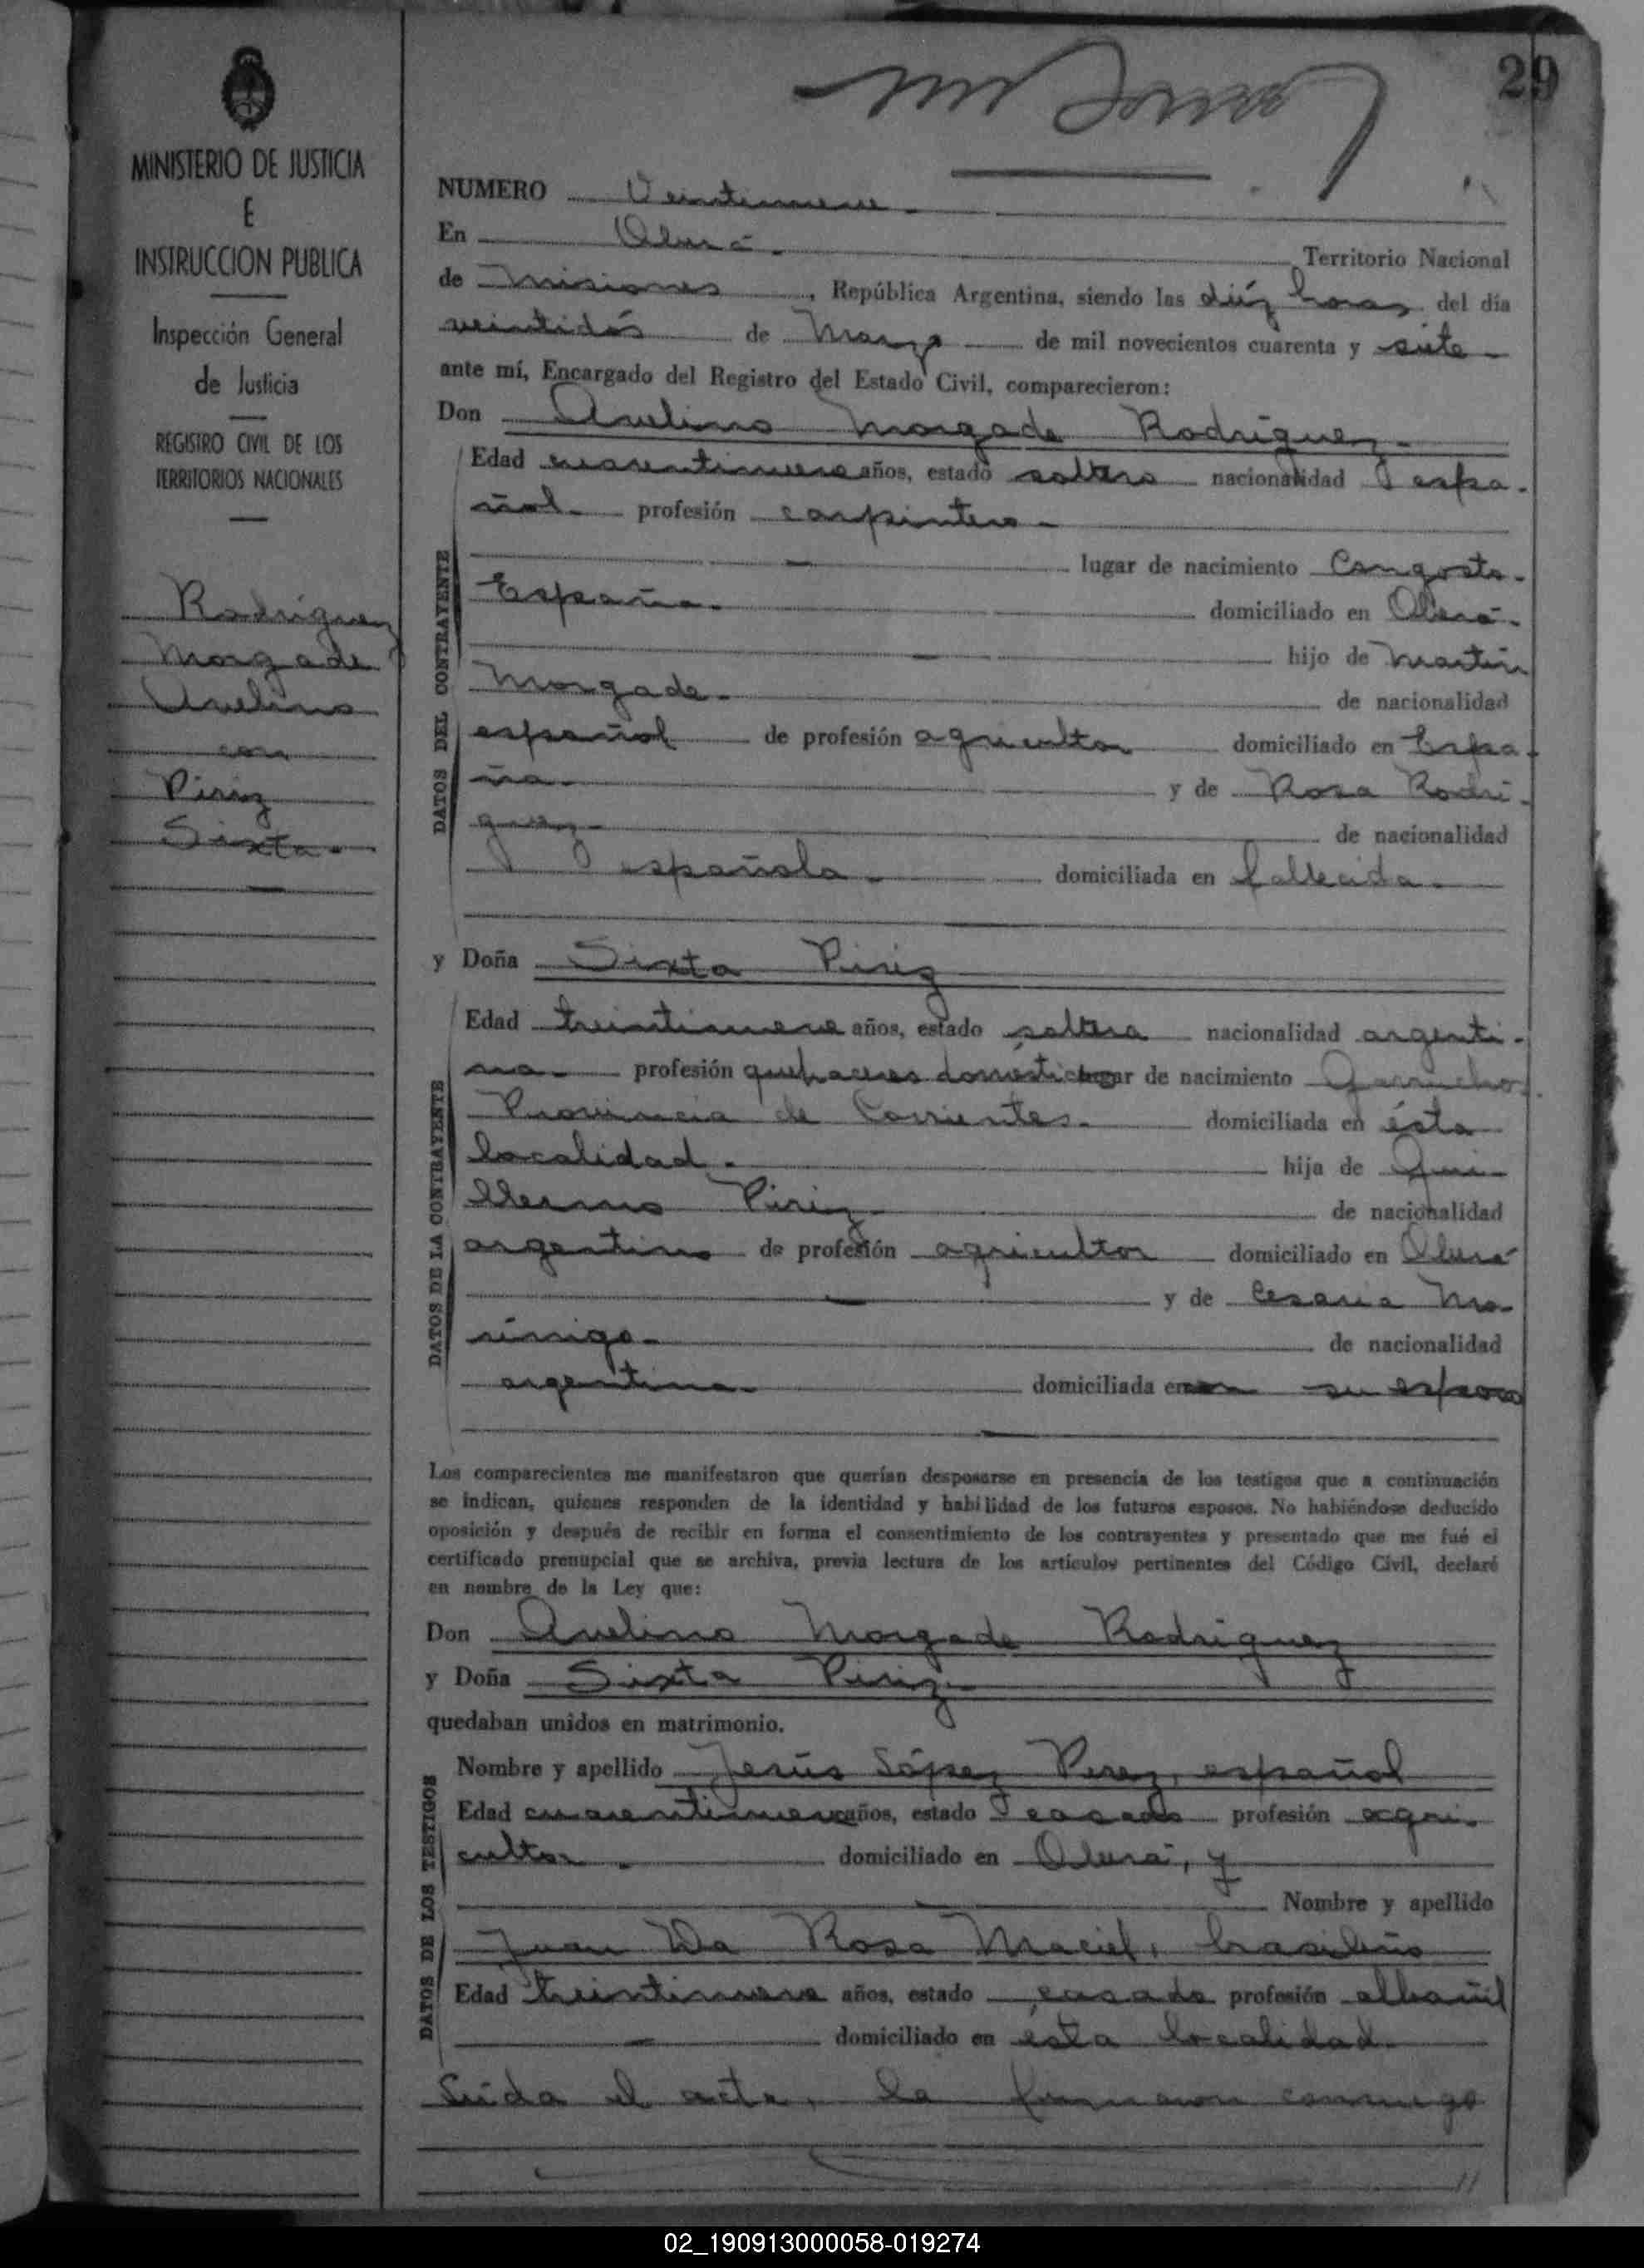 29
MINISTERIO DE JUSTICIA
E
INSTRUCCION PUBLICA
Inspección General
de Justicia
REGISTRO CIVIL DE LOS
TERRITORIOS NACIONALES
Rodríguez
Morgade
Avelino
con
Piriz
Sixta.
NUMERO Veintinueve
En Oberá. Territorio Nacional
de Misiones, República Argentina, siendo las diéz horas del día
veintidós de Marzo de mil novecientos cuarenta y siete
ante mí, Encargado del Registro del Estado Civil, comparecieron:
Don Avelino Morgade Rodríguez.
DATOS DEL CONTRAYENTE
Edad cuarentinueve años, estado soltero nacionalidad espa-
ñol. profesión carpintero.
lugar de nacimiento Congosto.
España. domiciliado en Oberá.
hijo de Martín
Morgade. de nacionalidad
español de profesión agricultor domiciliado en Espa-
ña. y de Rosa Rodrí-
guez. de nacionalidad
española. domiciliada en fallecida.
y Doña Sixta Piriz
DATOS DE LA CONTRAYENTE
Edad treintinueve años, estado soltera nacionalidad argenti-
na. profesión quehaceres domésticos lugar de nacimiento Garruchos.
Provincia de Corrientes. domiciliada en ésta
localidad. hija de Gui-
llermo Piriz de nacionalidad
argentino de profesión agricultor domiciliado en Oberá
y de Cesaria Ma-
rínigo. de nacionalidad
argentina. domiciliada en con su esposo
Los comparecientes me manifestaron que querían desposarse en presencia de los testigos que a continuación
se indican, quienes responden de la identidad y habilidad de los futuros esposos. No habiéndose deducido
oposición y después de recibir en forma el consentimiento de los contrayentes y presentado que me fué el
certificado prenupcial que se archiva, previa lectura de los artículos pertinentes del Código Civil, declaré
en nombre de la Ley que:
Don Avelino Morgade Rodriguez
y Doña Sixta Piriz.
quedaban unidos en matrimonio.
DATOS DE LOS TESTIGOS
Nombre y apellido Jesús López Perez, español
Edad cuarentinueve años, estado casado profesión agri-
cultor. domiciliado en Oberá, y
Nombre y apellido
Juan Da Rosa Maciel, brasileño
Edad treintinueve años, estado casado profesión albañil
domiciliado en ésta localidad.
Leída el acta, la firmaron conmigo
02_190913000058-019274